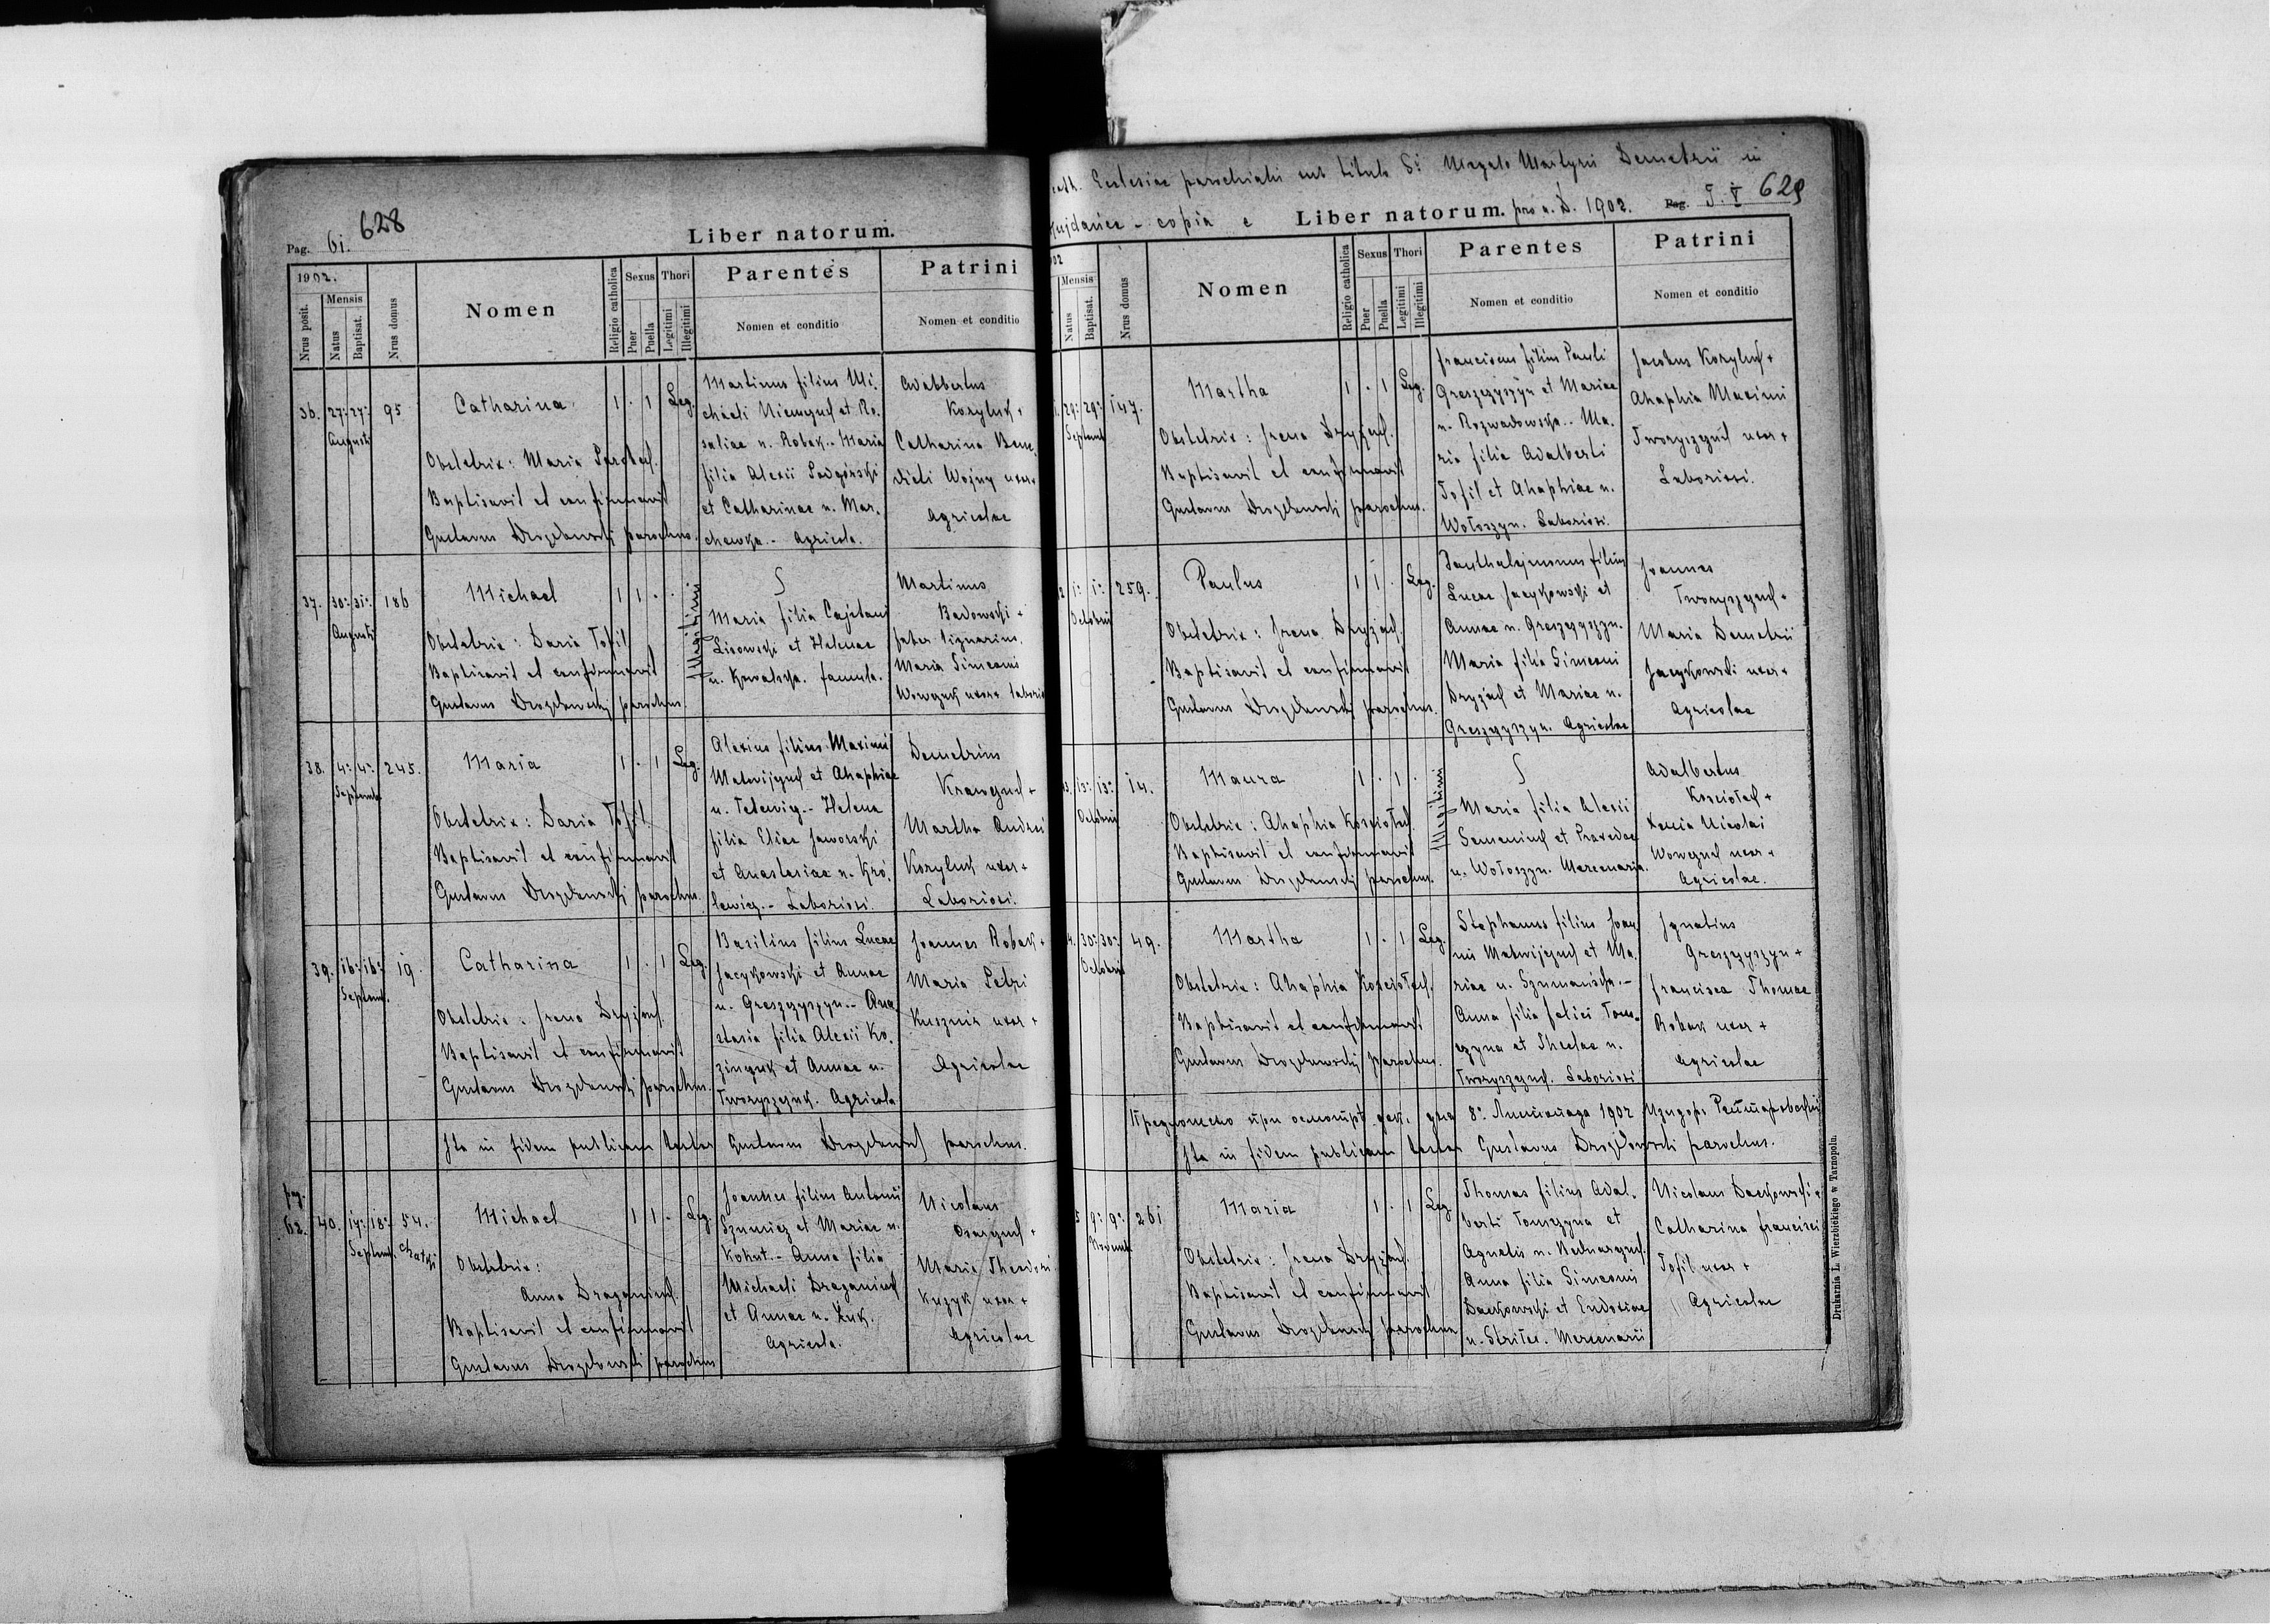 628
Pag. 61.
Liber natorum.
1902.
Nrus posit.
Mensis
Natus
Baptisat.
Nrus domus
Nomen
Religio catholica
Sexus
Puer
Puella
Thori
Legitimi
Illegitimi
Parentes
Nomen et conditio
Patrini
Nomen et conditio
36. 27. 27. 95 Catharina 1 . 1 Leg.
Augusti
Obstetrix: Maria
Baptisavit et confirmavit
Gustavus Drozdowski parochus.
Martinus filius Mi-
chaeli et Ro-
saliae n. Robak. - Maria
filia Alexii Podgórski
et Catharinae n. Mar-
chewka. - Agricola.
Adalbertus
Kozyluk +
Catharina Bene-
dicti Wojny uxor +
Agricolae
37. 30. 31. 186 Michael 1 1 . .
Augusti
Illegitimi
Obstetrix: Daria Tofil
Baptisavit et confirmavit
Gustavus Drozdowski parochus.
Maria filia Cajetani
Lisowski et Helenae
n. Kowalska. famula.
Martinus
Badowski +
faber lignarius.
Maria Simeoni
Wowczuk uxor
38. 4. 4. 245. Maria 1 . 1 Leg.
Septemb.
Obstetrix: Daria Tofil
Baptisavit et confirmavit
Gustavus Drozdowski parochus.
Alexius filius Maximi
Matwijczuk et Ahaphiae
n. - Helena
filia Eliae Jaworski
et Anastasiae n. Kró-
lewicz. - Laboriosi.
Demetrius
Krawczuk +
Martha Andrei
Kozyluk uxor +
Laboriosi.
39. 16. 16. 19. Catharina 1 . 1 Leg.
Septemb.
Obstetrix: Irena Dryjach.
Baptisavit et confirmavit
Gustavus Drozdowski parochus.
Basilius filius Lucae
Jacykowski et Annae
n. Greszczyszyn. - Ana-
stasia filia Alexii Ko-
zinczuk et Annae n.
Tworyszczuk. Agricola
Joannes Robak +
Maria Petri
Kusznir uxor +
Agricolae
Ita in fidem publicam testor Gustavus Drozdowski parochus.
pag.
62.
40. 14. 18. 54. Michael 1 1 . Leg.
Septemb. chatki
Obstetrix:
Anna Draganiuk.
Baptisavit et confirmavit
Gustavus Drozdowski parochus
Joannes filius Antonii
et Mariae n.
Kohut. - Anna filia
Michaeli Draganiuk
et Annae n. Żuk.
Agricola.
Nicolaus
+
Maria Theodori
Kuzyk uxor +
Agricolae
cath. Ecclesiae parochialis sub titulo S. Megalo Martyris Demetrii in
copia e Liber natorum. pro a. D. 1902. Pag. 629
Mensis
Natus
Baptisat.
Nrus domus
Nomen
Religio catholica
Sexus
Puer
Puella
Thori
Legitimi
Illegitimi
Parentes
Nomen et conditio
Patrini
Nomen et conditio
29. 29. 147. Martha 1 . 1 Leg.
Septemb
Obstetrix: Irena Dryjach.
Baptisavit et confirmavit
Gustavus Drozdowski parochus.
Franciscus filius Pauli
Greszczyszyn et Mariae
n. Rozwadowska. - Ma-
ria filia Adalberti
Tofil et Ahaphiae n.
Wołoszyn. Laboriosi.
Jacobus Kozyluk +
Ahaphia Maximi
Tworyszczuk uxor +
Laboriosi.
1. 1. 259. Paulus 1 1 . Leg.
Octobris
Obstetrix: Irena Dryjach.
Baptisavit et confirmavit
Gustavus Drozdowski parochus.
filius
Lucae Jacykowski et
Annae n. Greszczyszyn.
Maria filia Simeoni
Dryjach et Mariae n.
Greszczyszyn. Agricolae
Joannes
Tworyszczuk +
Maria Demetrii
Jacykowski uxor +
Agricolae
13. 13. 14. Maura 1 . 1 .
Octobris
Illegitimi
Obstetrix: Ahaphia Kościołek.
Baptisavit et confirmavit
Gustavus Drozdowski parochus.
Maria filia Alexii
Semeniuk et Paraxedae
n. Wołoszyn. Mercenaria.
Adalbertus
Kościołek +
Xenia Nicolai
Wowczuk uxor +
Agricolae.
30. 30. 49. Martha 1 . 1 Leg.
Octobris
Obstetrix: Ahaphia Kościołek.
Baptisavit et confirmavit
Gustavus Drozdowski parochus.
Stephanus filius Joan-
nis Matwijczuk et Ma-
riae n. Szumańska. -
Anna filia Felici Tom-
czyna et Theclae n.
Tworyszczuk. Laboriosi
Ignatius
Greszczyszyn +
Francisca Thomae
Robak uxor +
Agricolae
Предложено при осмотрѣ дек. дня 8. Листопада 1902
Ita in fidem publicam testor Gustavus Drozdowski parochus.
9. 9. 261 Maria 1 . 1 Leg
Novemb.
Obstetrix: Irena Dryjach.
Baptisavit et confirmavit
Gustavus Drozdowski parochus
Thomas filius Adal-
berti Tomczyna et
Agnetis n. Bednarczuk.
Anna filia Simeonis
Daćkowski et Eudoxiae
n. Mercenarii
Nicolaus Daćkowski +
Catharina Francisci
Tofil uxor +
Agricolae
Drukarnia L. Wierzbickiego w Tarnopolu.